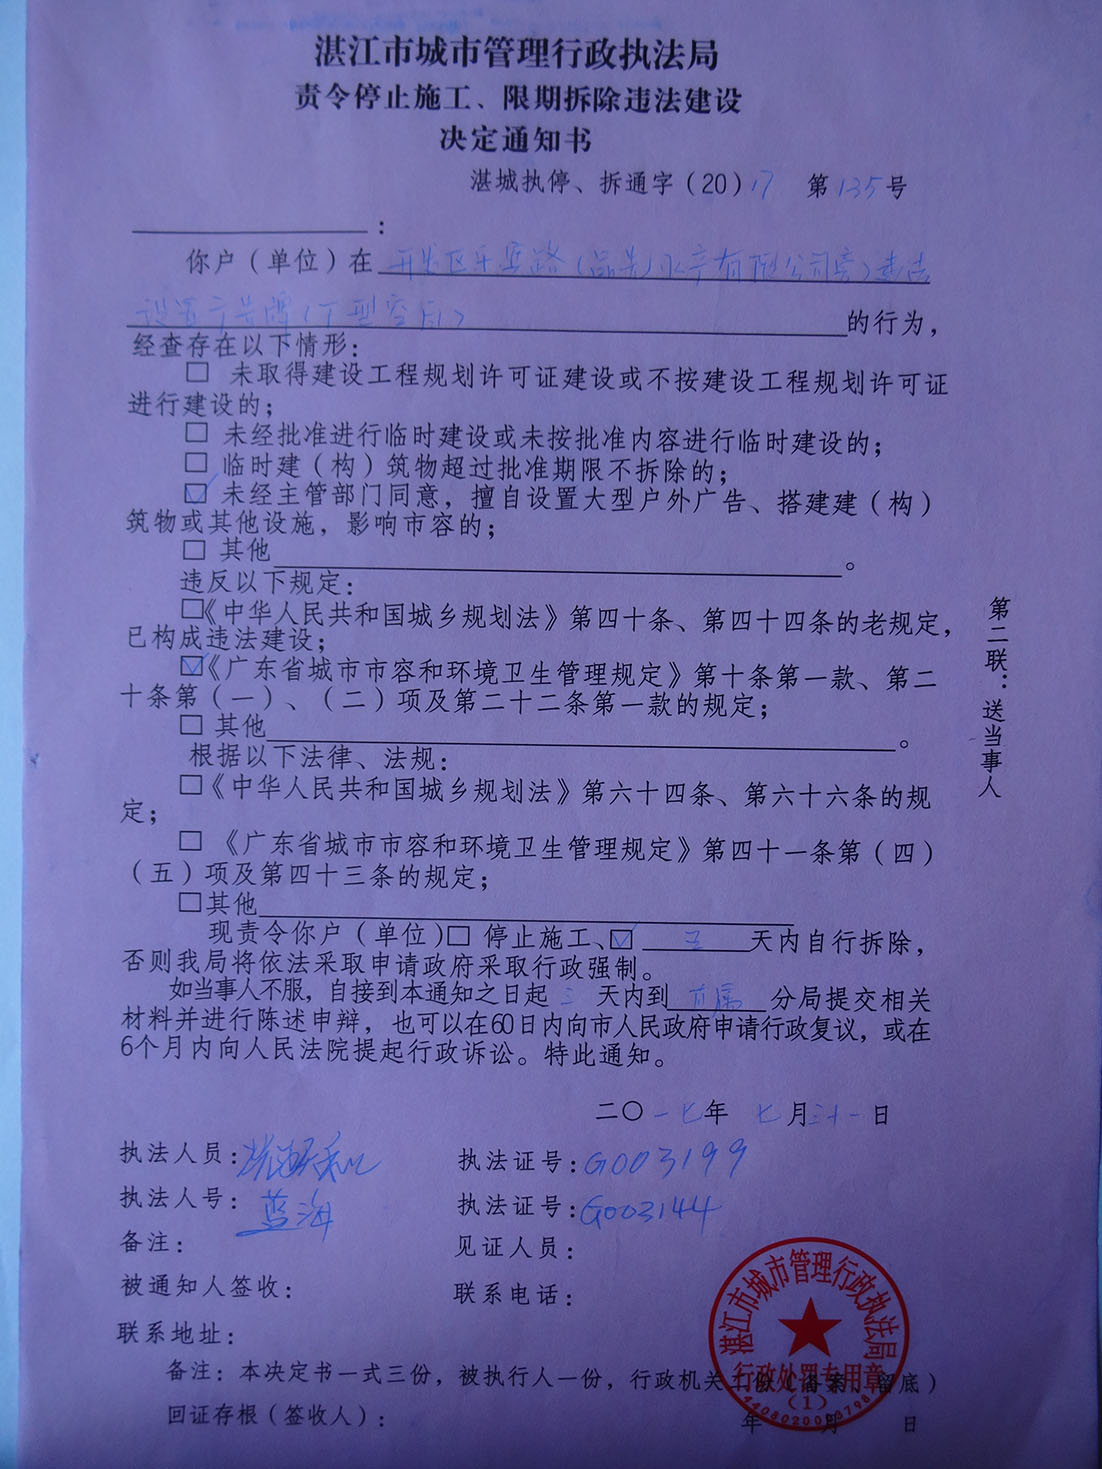 湛江市城市管理行政执法局
责令停止施工、限期拆除违法建设
决定通知书
湛城执停、拆通字（20）17 第135号
：
你户（单位）在开发区乐宾路（品先）水产有限公司旁）违法
设置广告牌（T型
的行为，
经查存在以下情形：
□ 未取得建设工程规划许可证建设或不按建设工程规划许可证
进行建设的；
□ 未经批准进行临时建设或未按批准内容进行临时建设的；
□ 临时建（构）筑物超过批准期限不拆除的；
☑ 未经主管部门同意，擅自设置大型户外广告、搭建建（构）
筑物或其他设施，影响市容的；
□ 其他 。
违反以下规定：
□《中华人民共和国城乡规划法》第四十条、第四十四条的老规定，
已构成违法建设；
☑《广东省城市市容和环境卫生管理规定》第十条第一款、第二
十条第（一）、（二）项及第二十二条第一款的规定；
□ 其他 。
根据以下法律、法规：
□《中华人民共和国城乡规划法》第六十四条、第六十六条的规
定；
□ 《广东省城市市容和环境卫生管理规定》第四十一条第（四）
（五）项及第四十三条的规定；
□其他
现责令你户（单位）□ 停止施工、☑ 五 天内自行拆除，
否则我局将依法采取申请政府采取行政强制。
如当事人不服，自接到本通知之日起 三 天内到 直属 分局提交相关
材料并进行陈述申辩，也可以在60日内向市人民政府申请行政复议，或在
6个月内向人民法院提起行政诉讼。特此通知。
二〇一七年 七月三十一日
执法人员： 执法证号：G003199
执法人号：蓝海 执法证号：G003144
备注： 见证人员：
被通知人签收： 联系电话：
联系地址：
备注：本决定书一式三份，被执行人一份，行政机关二份（备案、留底）
回证存根（签收人）： 年 月 日
第二联：送当事人
湛江市城市管理行政执法局
行政处罚专用章
（1）